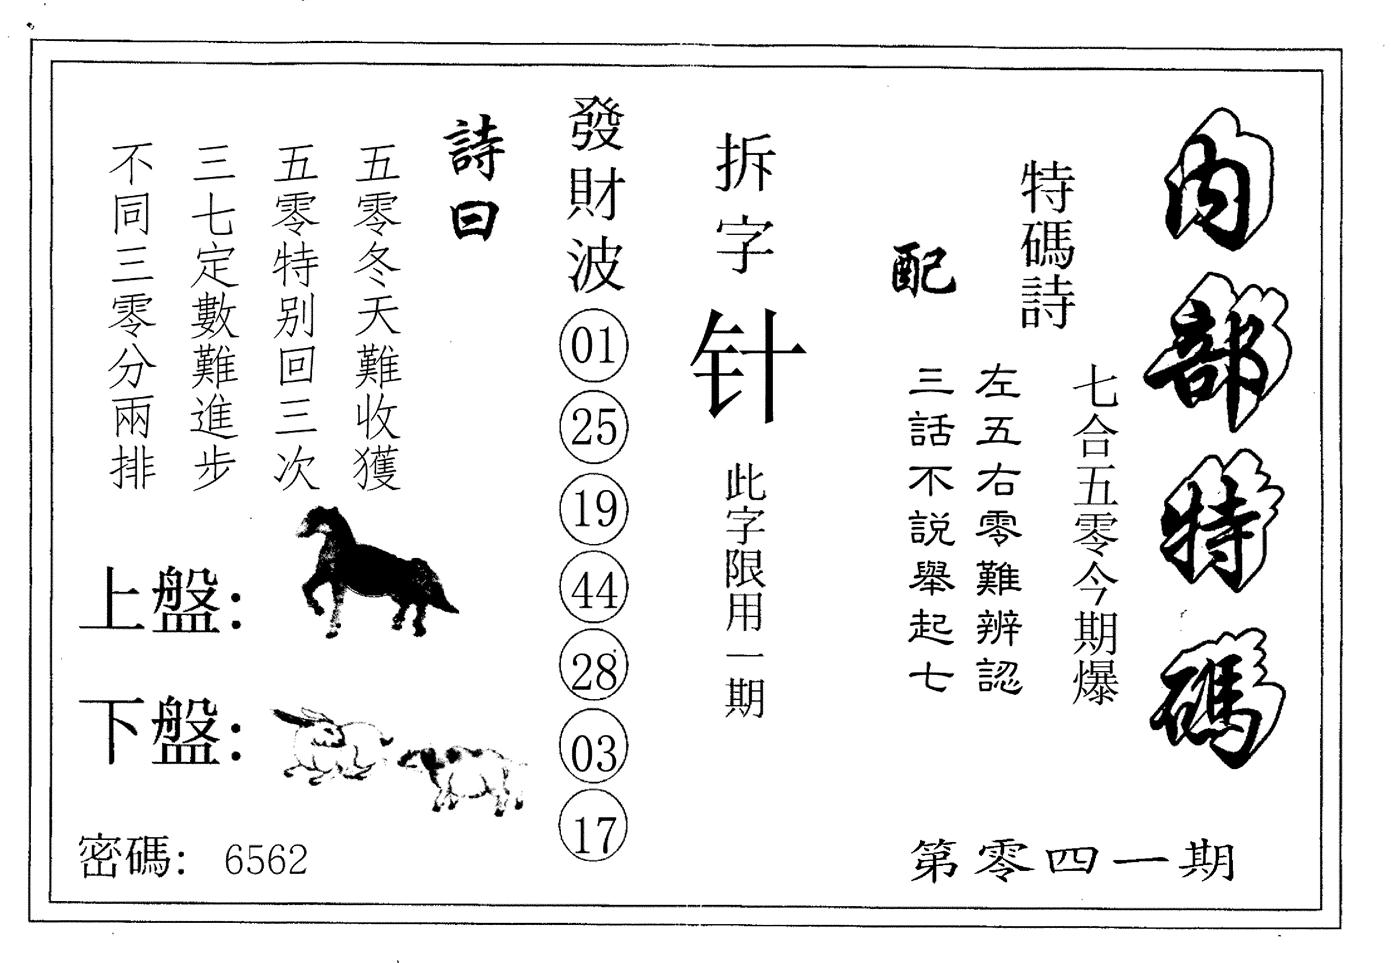 內部特碼
特碼詩
七合五零今期爆
左五右零難辨認
三話不説舉起七
配
第零四一期
拆字
针
此字限用一期
發財波
01
25
19
44
28
03
17
詩曰
五零冬天難收獲
五零特别回三次
三七定數難進步
不同三零分兩排
上盤：
下盤：
密碼： 6562